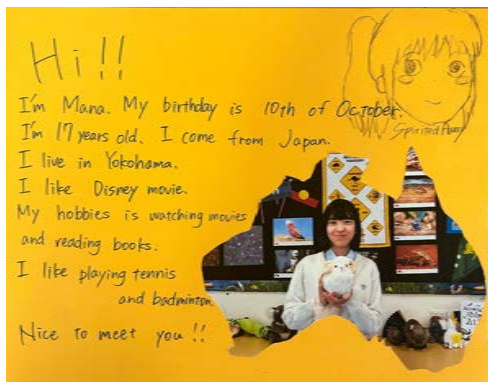 Hi!!
I'm Mana. My birthday is 10th of October.
I'm 17 years old. I come from Japan.
I live in Yokohama.
I like Disney movie.
My hobbies is watching movies
and reading books.
I like playing tennis
and badminton.
Nice to meet you!!
Spirited